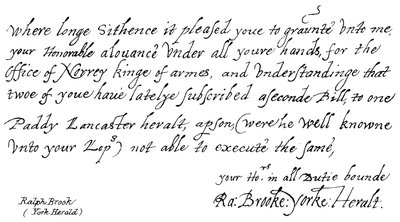 where longe Sithence it pleased youe to graunte vnto me,
your Honorable alouance vnder all youre hands, for the
Office of Norrey kinge of armes, and vnderstandinge that
twoe of youe haue latelye subscribed a seconde Bill, to one
Paddy Lancaster heralt, a pson, (were he well knowne
vnto your Lop^s) not able to execute the same,
your Ho:^rs in all Dutie bounde
Ra: Brooke: Yorke. Heralt.
Ralph Brook
(York Herald)